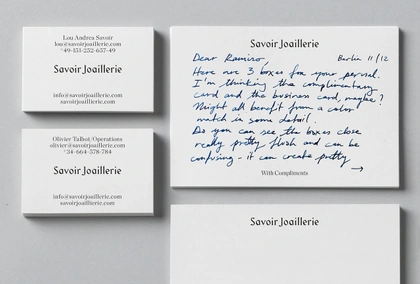 Lou Andrea Savoir
lou@savoirjoaillierie.com
+49-151-252-657-49
Savoir Joaillerie
info@savoirjoaillierie.com
savoirjoaillierie.com
Olivier Talbot/Operations
olivier@savoirjoaillierie.com
+34-664-378-784
Savoir Joaillerie
info@savoirjoaillierie.com
savoirjoaillierie.com
Savoir Joaillerie
Dear Ramiro, Berlin 11/12
Here are 3 boxes for your perusal.
I'm thinking the complimentary
card and the business card, maybe?
Might all benefit from a color
match in some detail.
Do you can see the boxes close
really pretty flush and can be
confusing - it can create pretty
→
With Compliments
Savoir Joaillerie